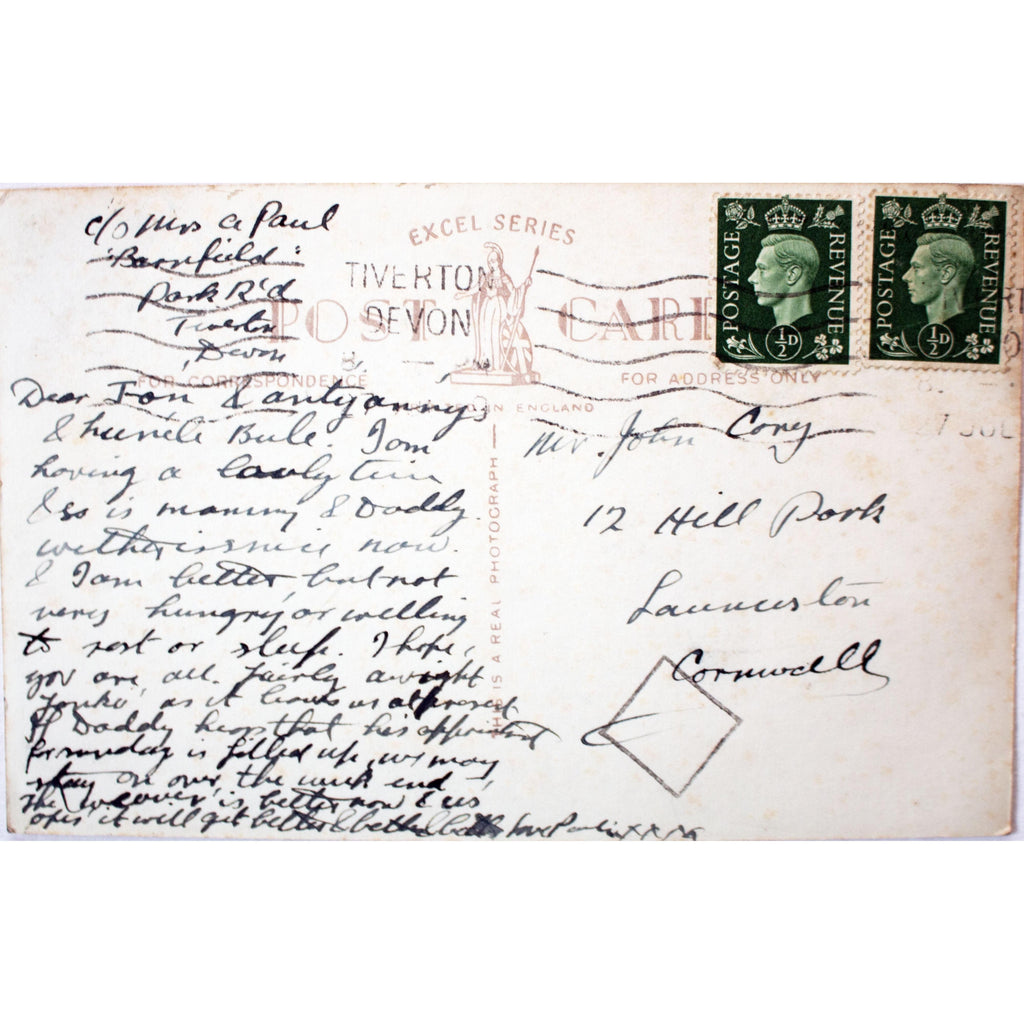 c/o Mrs a Paul
"Barnfield"
Park R'd
Tiverton
Devon
EXCEL SERIES
TIVERTON
DEVON
POST CARD
FOR CORRESPONDENCE
FOR ADDRESS ONLY
IN ENGLAND
THIS IS A REAL PHOTOGRAPH
POSTAGE REVENUE
½D
POSTAGE REVENUE
½D
27 JUL
Dear Jon &
& Bule. I am
having a tim
& so is mammy & Daddy.
now.
& I am better but not
very hungry or willing
to rest or sleep. I hope,
you are all. Fairly awright
as it leaves us at present
If Daddy that his
for sunday is filled up, we may
stay on over, the week end,
the is better now & us
it will get better & better & better love xxx
Mr. John Cory
12 Hill Park
Launceston
Cornwall